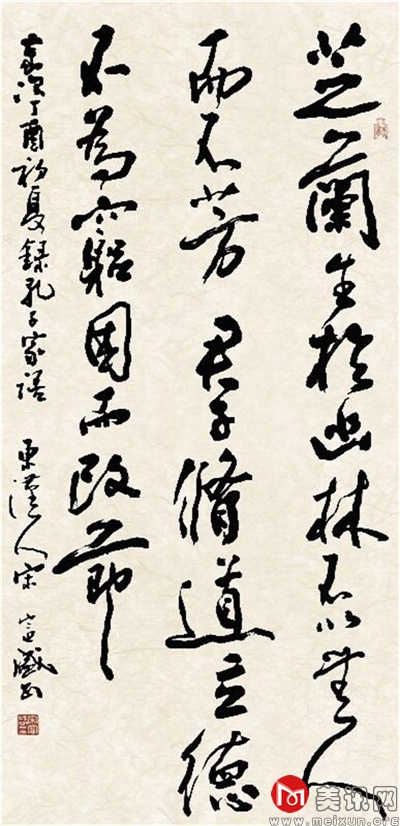 芝蘭生於幽林不以無人
而不芳君子脩道立德
不為窮困而改節
歲次丁酉初夏錄孔子家語 人宋富盛書
美讯网
www.meixun.org